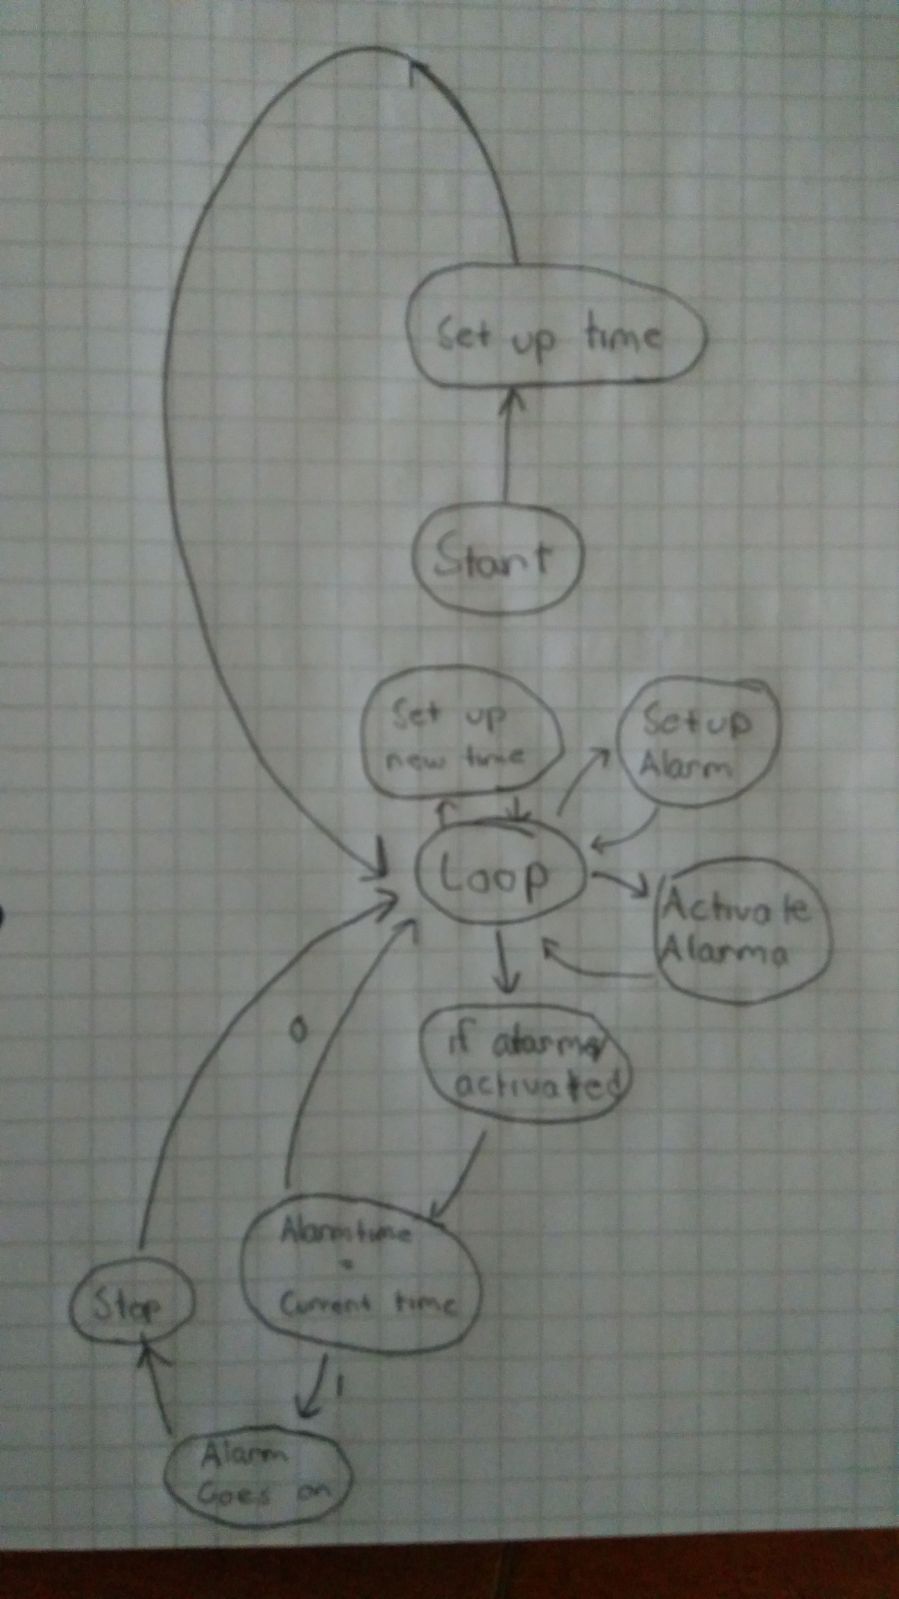 Set up time
Start
Set up
new time
Setup
Alarm
Loop
Activate
Alarma
0
if alarma
activated
Alarm time
=
Current time
Stop
1
Alarm
Goes on